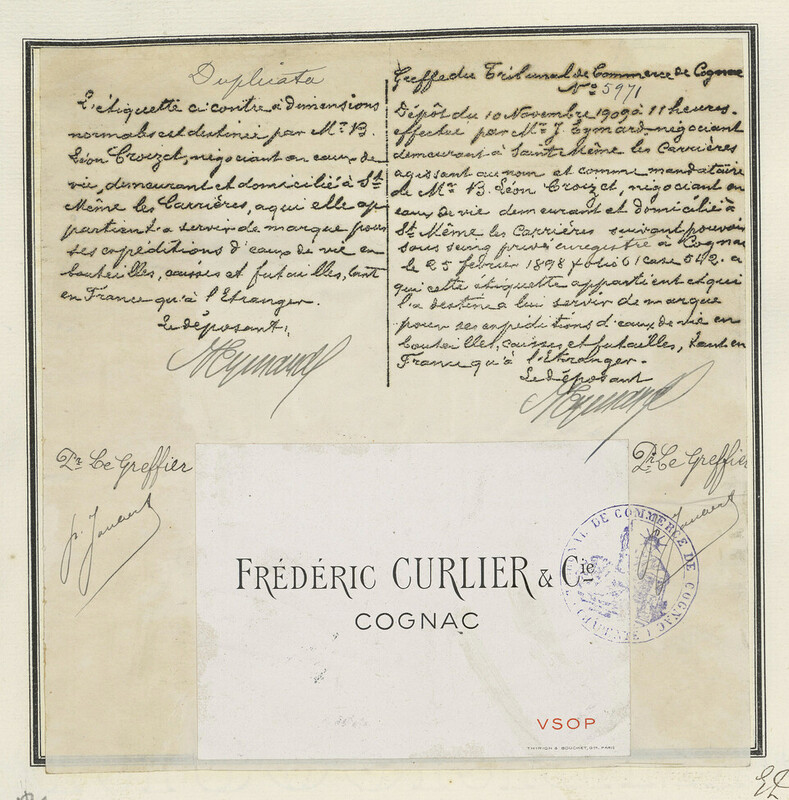 Duplicata
L'étiquette ci contre à dimensions
normales est destinée par Mr. B.
Léon Croizet, négociant en eaux de
vie, demeurant et domicilié à St
Même les Carrières, a qui elle ap
partient a servir de marque pour
ses expéditions d'eaux de vie en
bouteilles, caisses et futailles, tant
en France qu'à l'Etranger.
Le déposant,
Greffe du Tribunal de Commerce de Cognac
No 5971
Dépôt du 10 Novembre 1909 à 11 heures.
effectué par Mr. J. Eymard négociant
demeurant à Saint Même les Carrières
agissant au nom et comme mandataire
de Mr. B. Léon Croizet, négociant en
eaux de vie demeurant et domicilié à
St Même les Carrières suivant pouvoir
sous seing privé enregistré à Cognac
le 25 février 1898 folio 61 case 542. a
qui cette étiquette appartient et qui
l'a destine a lui servir de marque
pour ses expéditions d'eaux de vie en
bouteilles, caisses et futailles, tant en
France qu'à l'Etranger.
Le déposant
Pr Le Greffier
Pr Le Greffier
FRÉDÉRIC CURLIER & Cie
COGNAC
VSOP
THIRION & BOUCHET, GR. PARIS
TRIBUNAL DE COMMERCE DE COGNAC
(CHARENTE)